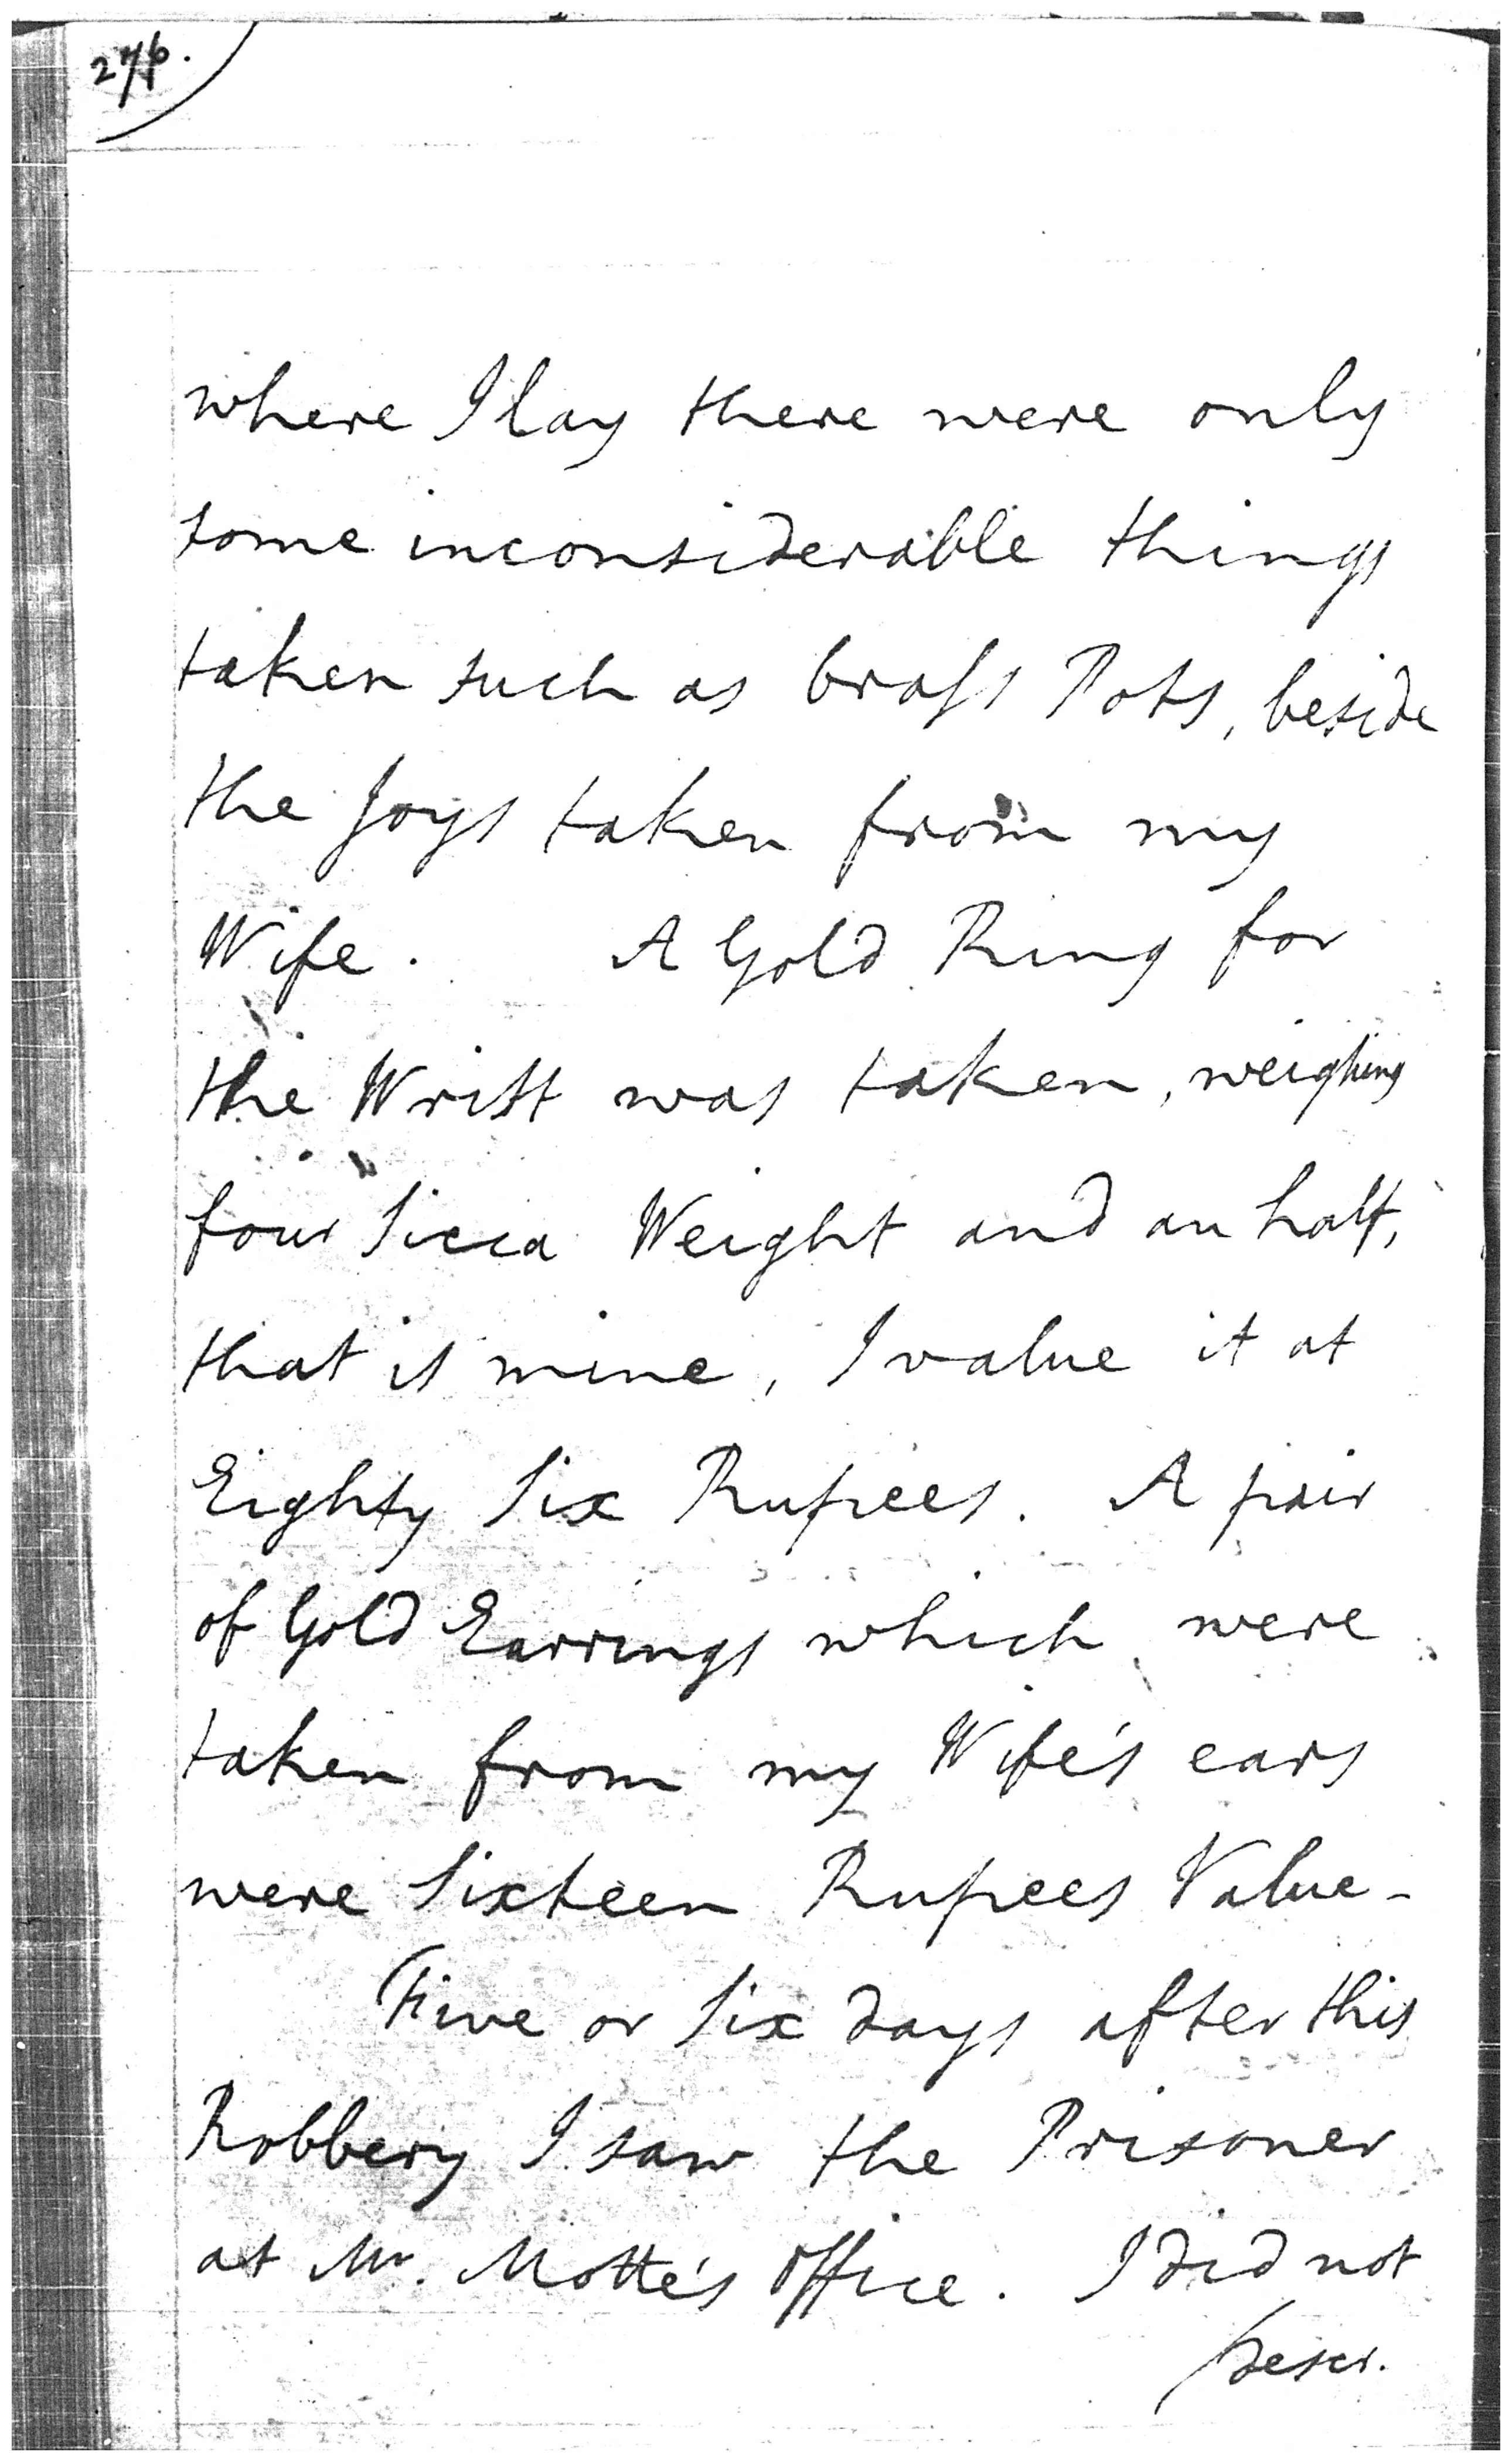 276.
where I lay there were only
some inconsiderable things
taken such as brass Pots, beside
the Joys taken from my
Wife. A Gold Ring for
the Wrist was taken, weighing
four Sicca Weight and an half,
that is mine, I value it at
Eighty Six Rupees. A pair
of Gold Earrings which were
taken from my Wife's ears
were Sixteen Rupees Value -
Five or Six days after this
Robbery I saw the Prisoner
at Mr. Motte's Office. I did not
descr.